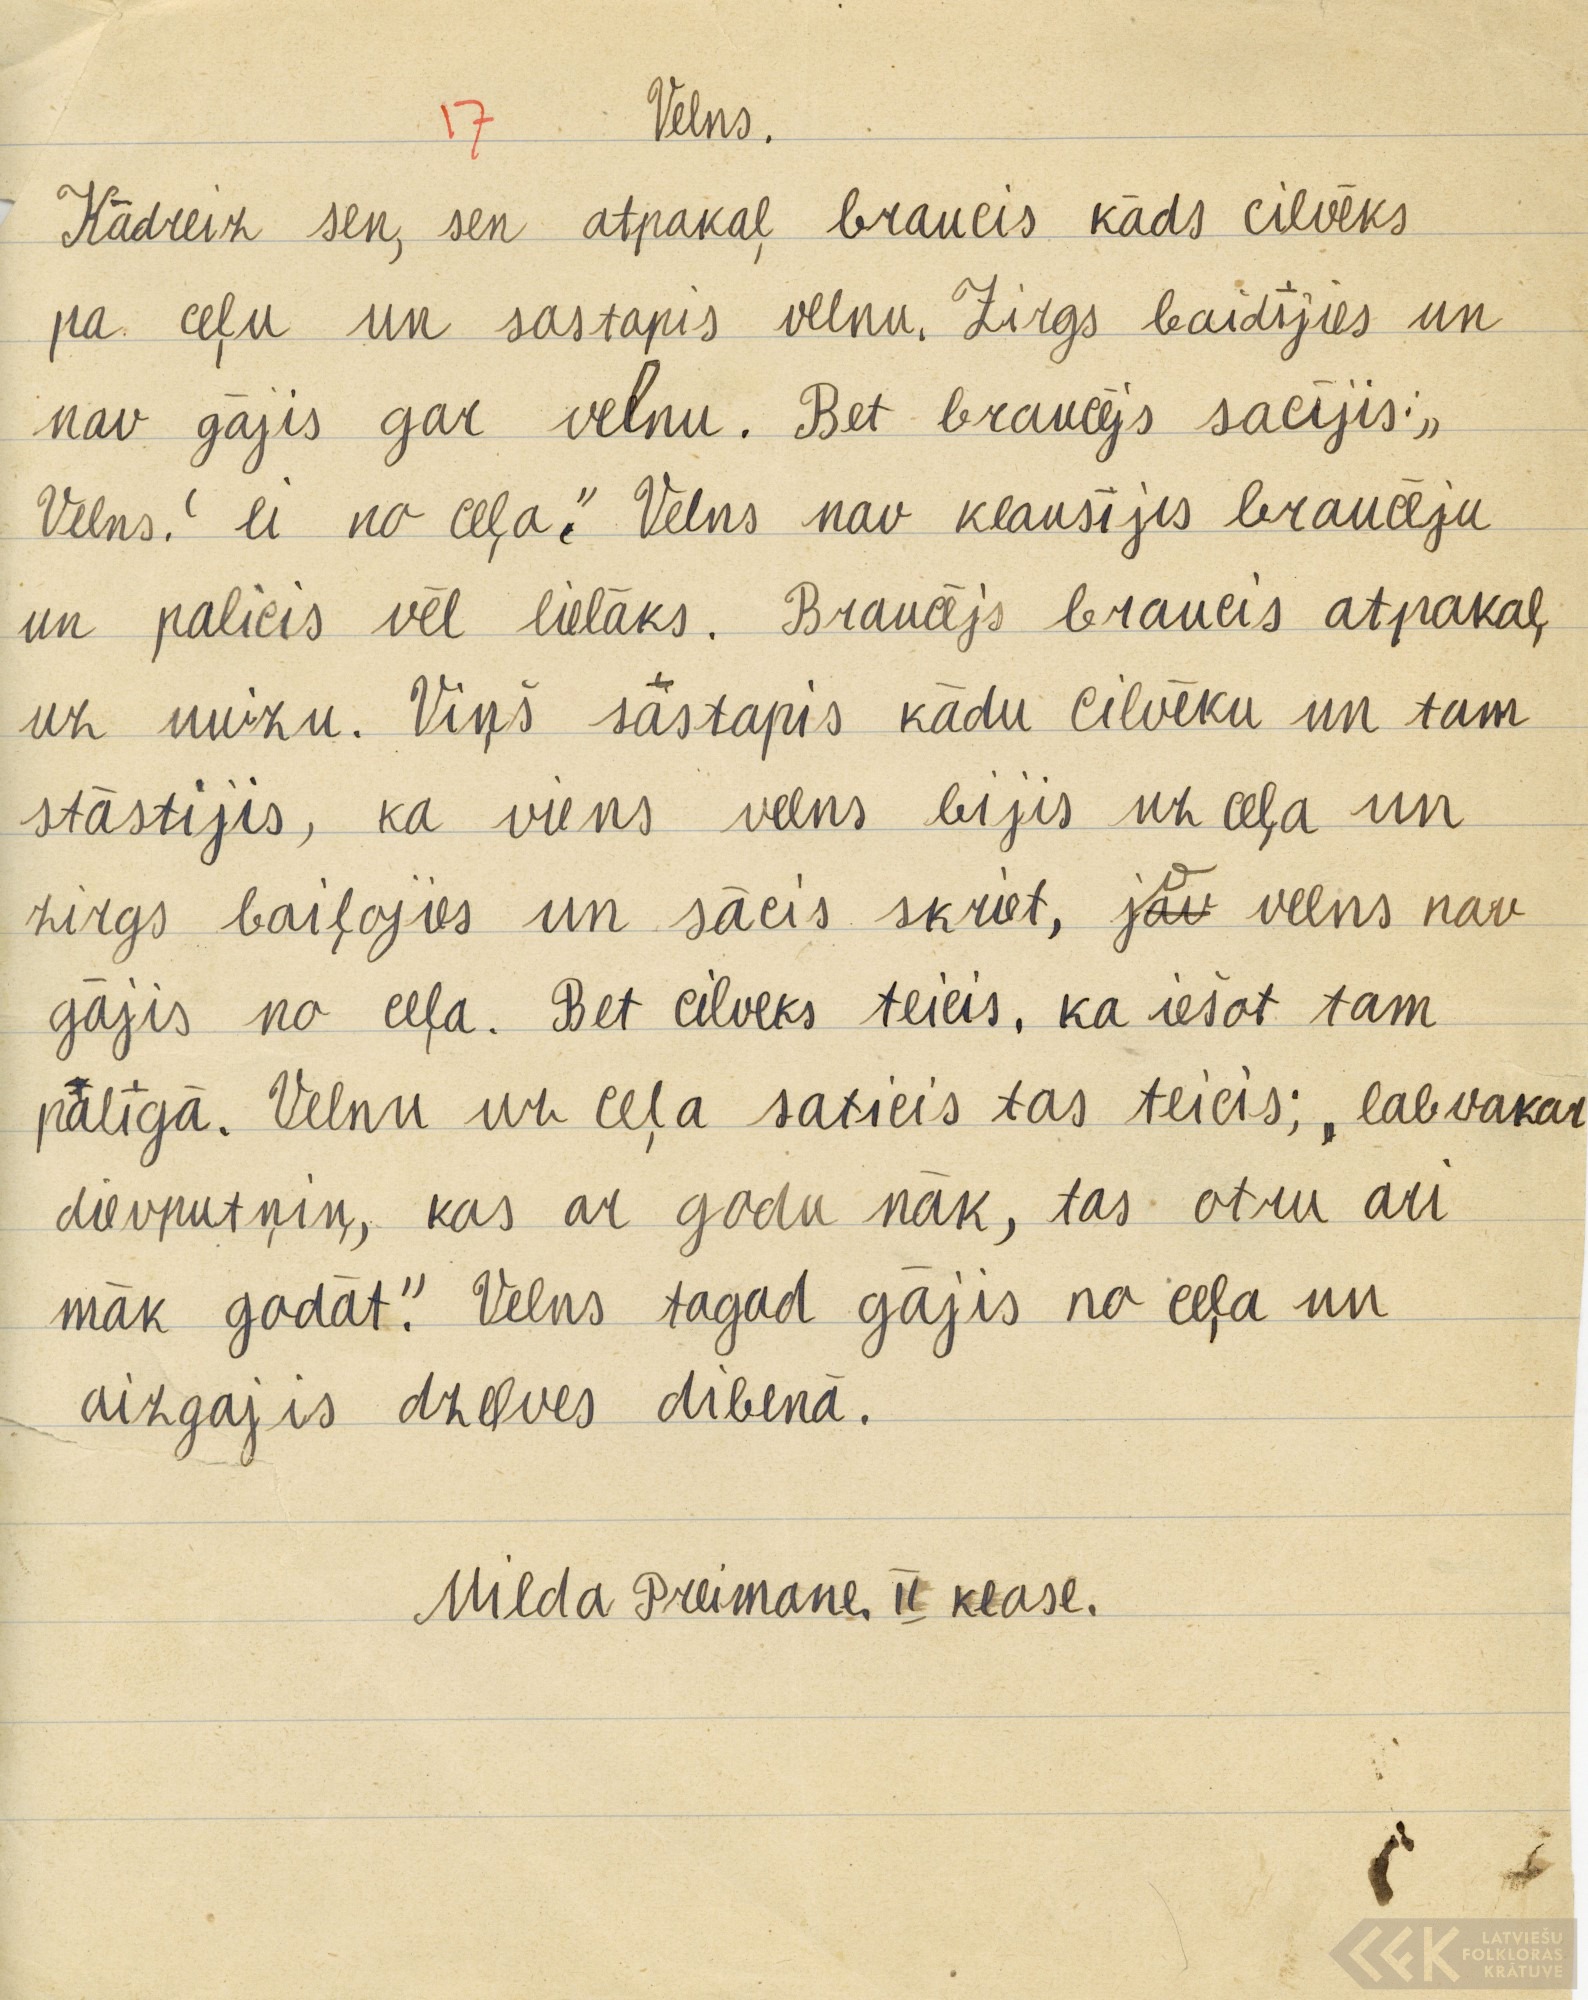 17 Velns.
Kādreiz sen, sen atpakaļ braucis kāds cilvēks
pa ceļu un sastapis velnu. Zirgs baidījies un
nav gājis gar velnu. Bet braucējs sacījis: „
Velns! ei no ceļa." Velns nav klausījis braucēju
un palicis vēl lielāks. Braucējs braucis atpakaļ
uz muižu. Viņš sastapis kādu cilvēku un tam
stāstijis, ka viens velns bijis uz ceļa un
zirgs baiļojies un sācis skriet, velns nav
gājis no ceļa. Bet cilveks teicis, ka iešot tam
palīgā. Velnu uz ceļa saticis tas teicis; „labvakar
dievputņiņ, kas ar godu nāk, tas otru ari
māk godāt." Velns tagad gājis no ceļa un
aizgajis dzelves dibenā.
Milda Preimane. II klase.
LATVIEŠU
FOLKLORAS
KRĀTUVE